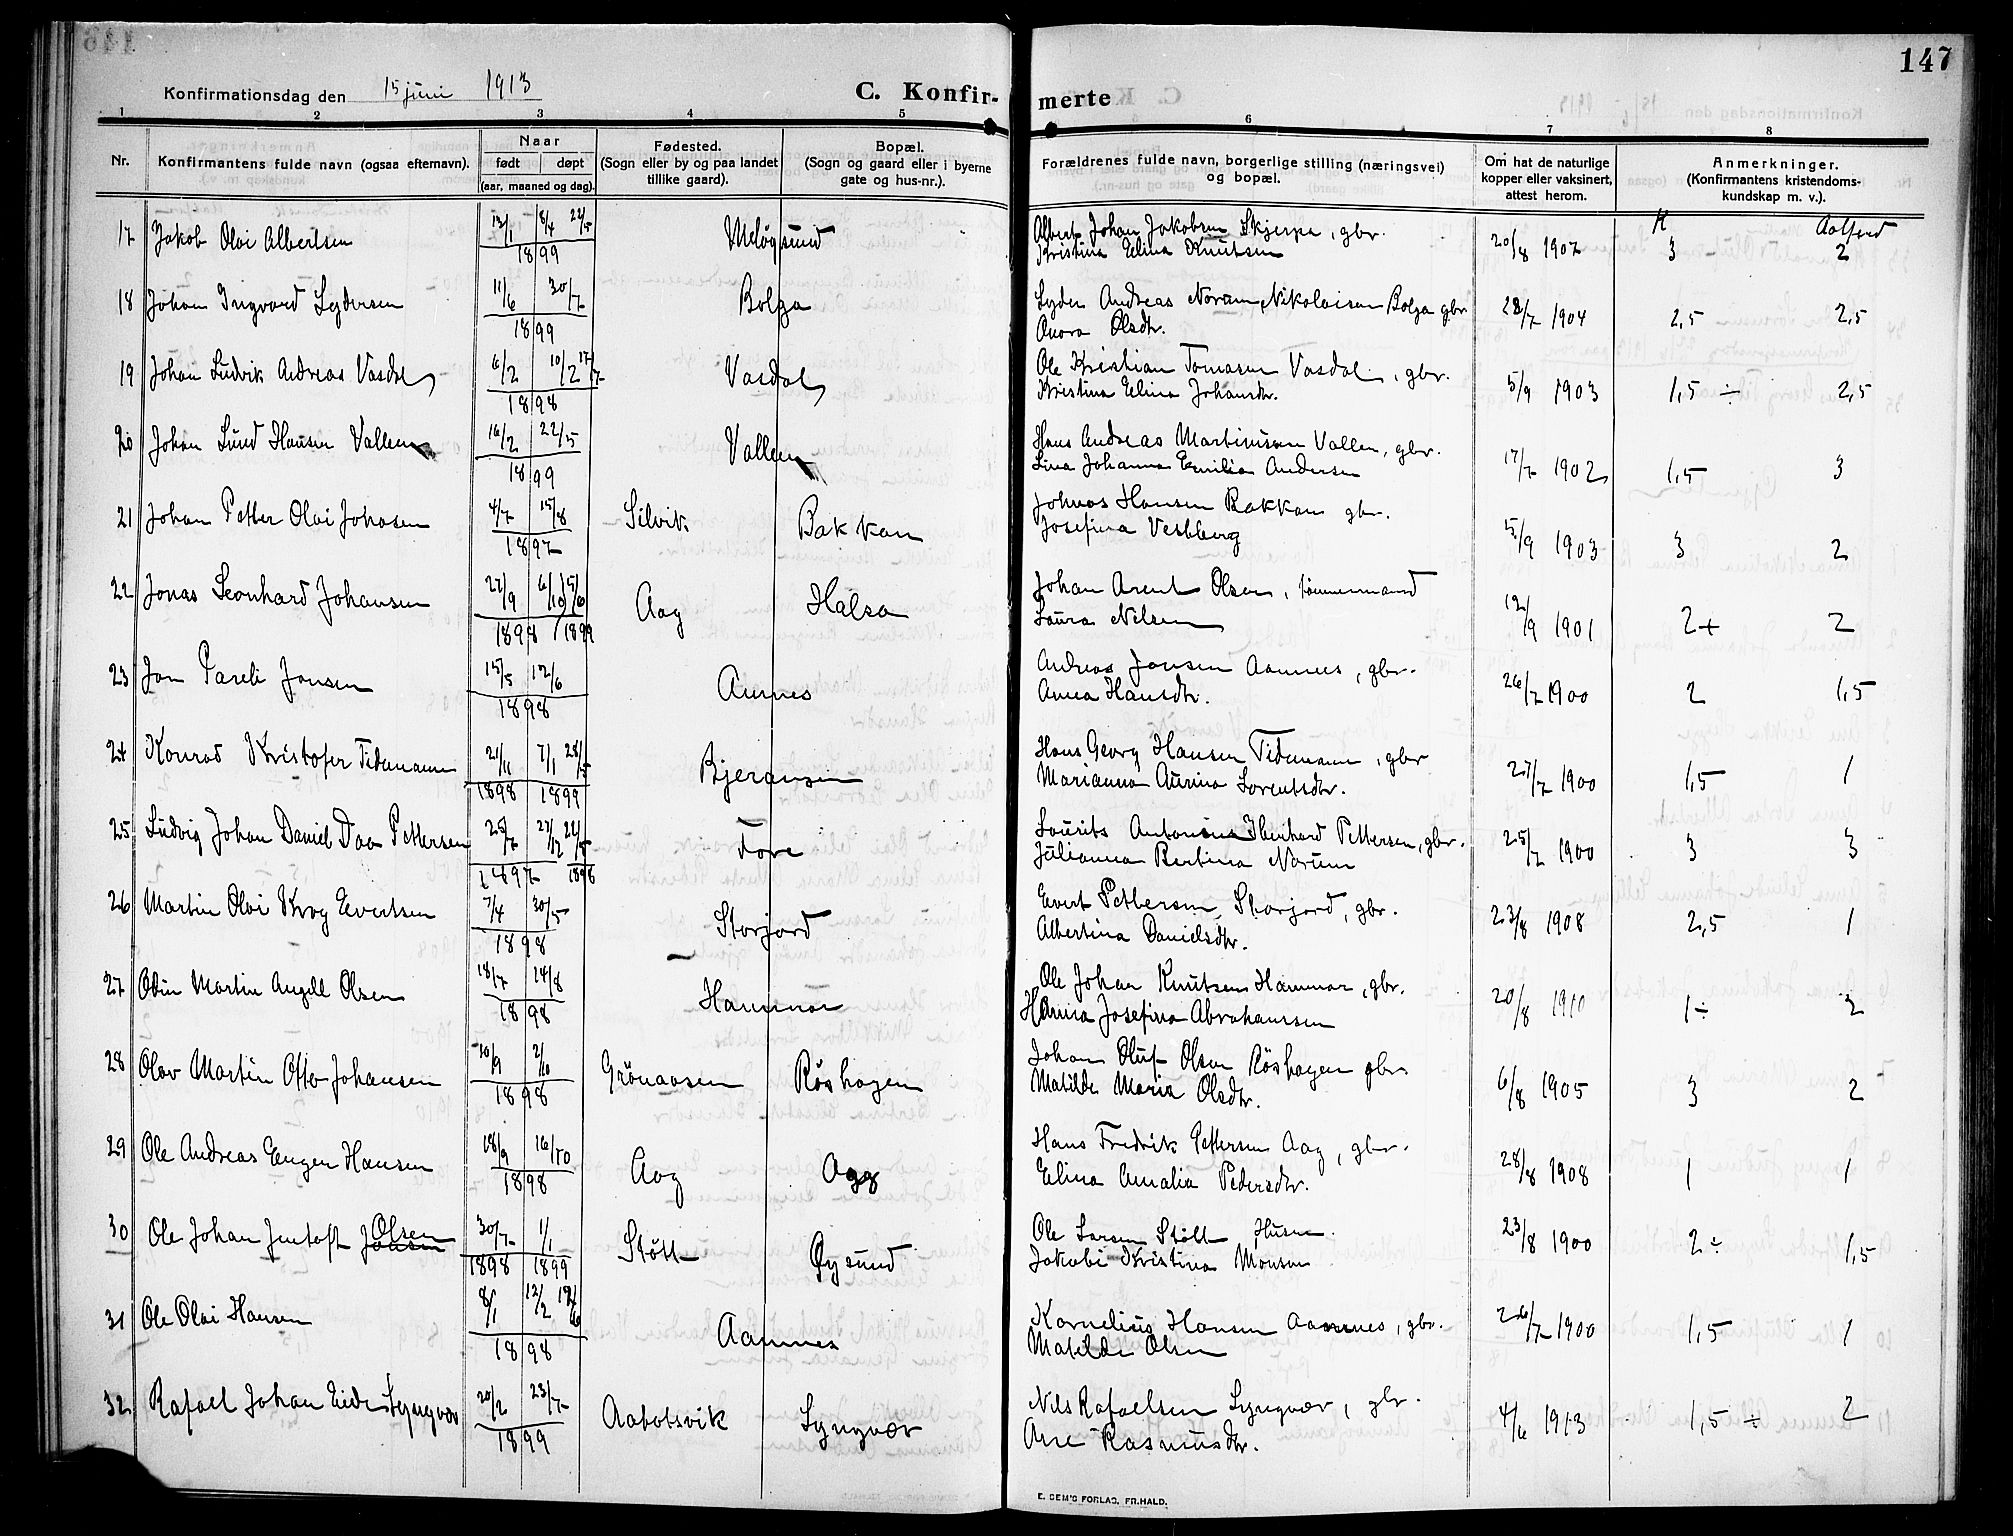 147
Konfirmationsdag den 15 juni 1913
C. Konfirmerte
1 2 3 4 5 6 7 8
Nr.
Konfirmantens fulde navn (ogsaa efternavn).
Naar
født døpt
(aar, maaned og dag).
Fødested.
(Sogn eller by og paa landet
tillike gaard).
Bopæl.
(Sogn og gaard eller i byerne
gate og hus-nr.).
Forældrenes fulde navn, borgerlige stilling (næringsvei)
og bopæl.
Om hat de naturlige
kopper eller vaksinert,
attest herom.
Anmerkninger.
(Konfirmantens kristendoms-
kundskap m. v.).
17 Jakob Olai Albertsen 12/1 8/4 22/5 Meløysund Albert Johan Jakobsen Skjerpa, gbr. 20/8 1907 3 2
1899 Kristina Elina Knutsen
18 Johan Ingvard Lydersen 11/6 30/7 Bolga Lyder Andreas Norum Nikolaisen Bolga gbr 28/7 1904 2,5 2,5
1899 Anora Olsdtr.
19 Johan Ludvik Andreas Vasdal 6/2 10/2 17/7 Vasdal Ole Kristian Tomasen Vasdal, gbr. 5/9 1903 1,5 ÷ 2,5
1898 Kristina Elina Johansdtr.
20 Johan Lund Hansen Vallen 16/2 22/5 Vallen Hans Andreas Martinusen Vallen, gbr. 17/7 1902 1,5 3
1899 Lina Johanna Emilia Andersen
21 Johan Petter Olai Johasen 4/7 15/8 Silvik Bakkan Johnas Hansen Bakkan gbr. 5/9 1903 3 2
1897 Josefina Vestberg
22 Jonas Leonhard Johansen 27/9 6/10 15/6 Aag Halsa Johan Arent Olsen, tømmermand 12/9 1901 2+ 2
1898 1899 Laura Nilsen
23 Jon Pareli Jonsen 15/5 12/6 Aannes Andreas Jonsen Aannes, gbr. 26/7 1900 2 1,5
1898 Anna Hansdtr.
24 Konrad Kristofer Tidemann 21/11 7/1 28/5 Bjerangen Hans Georg Hansen Tidemann, gbr 27/7 1900 1,5 1
1898 1899 Marianna Aurina Lorentsdtr.
25 Ludvig Johan Daniel Daa Pettersen 25/7 27/12 22/5 Fore Lourits Antonius Iberhard Pettersen, gbr. 25/7 1900 3 3
1897 1898 Julianna Bertina Norum
26 Martin Olai Krog Evertsen 7/4 30/5 Storjord Evert Pettersen, Storjord, gbr. 23/8 1908 2,5 1
1898 Albertina Danielsdtr.
27 Odin Martin Angell Olsen 18/7 24/8 Hammar Ole Johan Knutsen Hammar, gbr. 20/8 1910 1÷ 2
1898 Hanna Josefina Abrahamsen
28 Olav Martin Otto Johansen 10/9 2/10 Grønaasen Røshagen Johan Oluf Olsen Røshagen gbr 6/8 1905 3 2
1898 Matilde Maria Olsdtr.
29 Ole Andreas Eugen Hansen 18/9 16/10 Aag Aag Hans Fredrik Pettersen Aag, gbr. 28/8 1908 1 1
1898 Elina Amalia Pedersdtr.
30 Ole Johan Jentoft Jonsen Olsen 30/7 1/1 Støtt Øysund Ole Larsen Støtt Husm. 23/8 1900 2÷ 1,5
1898 1899 Jakobi Kristina Monsen
31 Ole Olai Hansen 8/1 12/2 12/6 Aannes Kornelius Hansen Aannes, gbr. 26/7 1900 1,5 1
1898 Matilde Olsen
32 Rafael Johan Eide Lyngvær 20/2 23/7 Aabotsvik Lyngvær Nils Rafaelsen Lyngvær, gbr. 4/6 1913 1,5 ÷ 2
1899 Ane Rasmusdtr.
E. SEM'S FORLAG, FR.HALD.